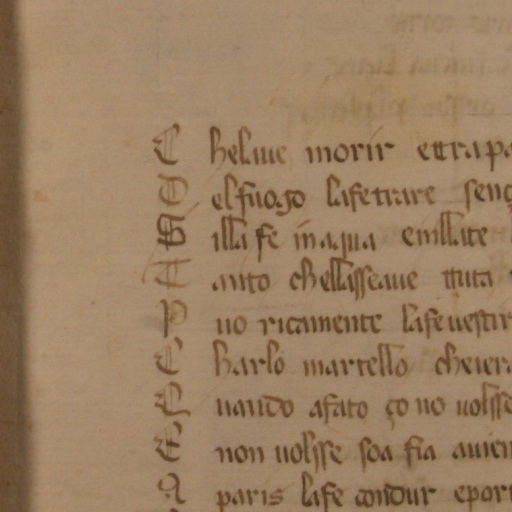 C heluue morir et tra pa
D el fuogo lafe trare senç
E illa fe in aqua e in llate
T anto chellasseaue ttuta
P uo ricamente lafe uestir
C harlo martello che iera
Q uando afato ço no uolsse
E non uolsse soa fia auien
A paris lafe condur e por